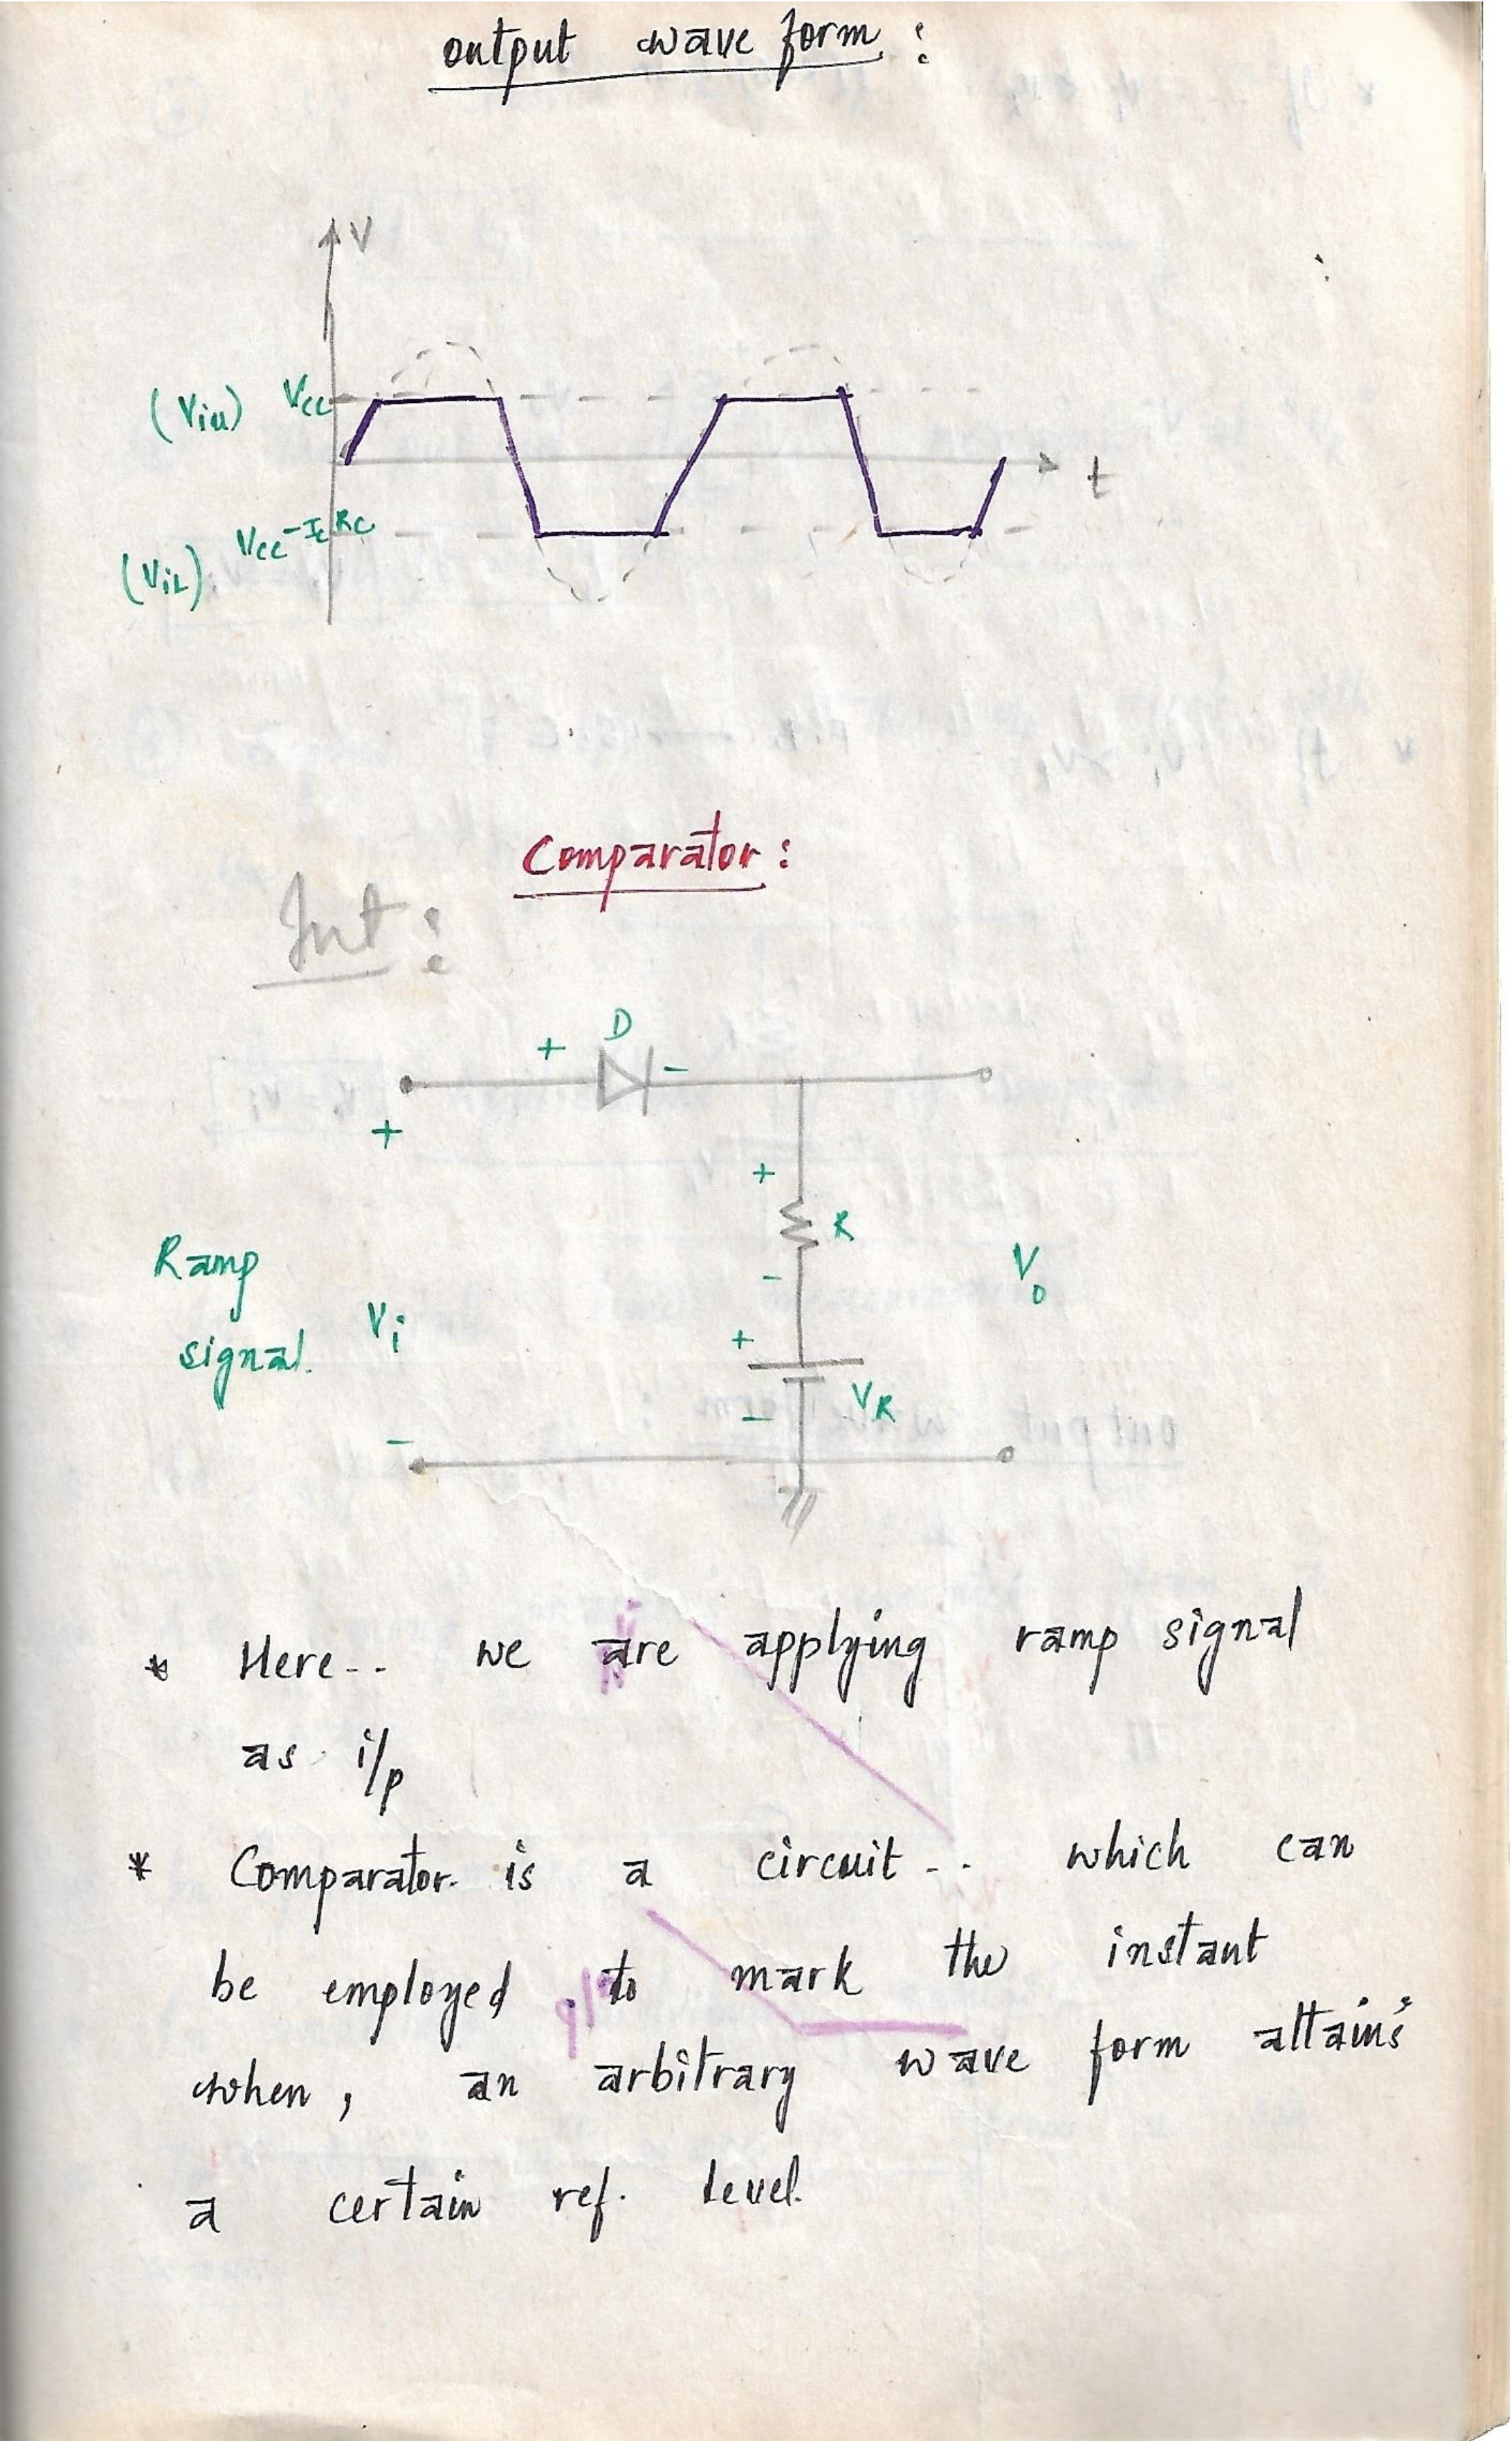 output wave form :
V
(Viu) Vcc
t
Vcc-IcRc
(ViL)
Comparator :
Int :
+ D -
+
+
R
-
Ramp
signal.
Vi
Vo
+
VR
-
-
* Here-- we are applying ramp signal
as i/p
* Comparator is a circuit-- which can
be employed to mark the instant
when, an arbitrary wave form attains
a certain ref. level.